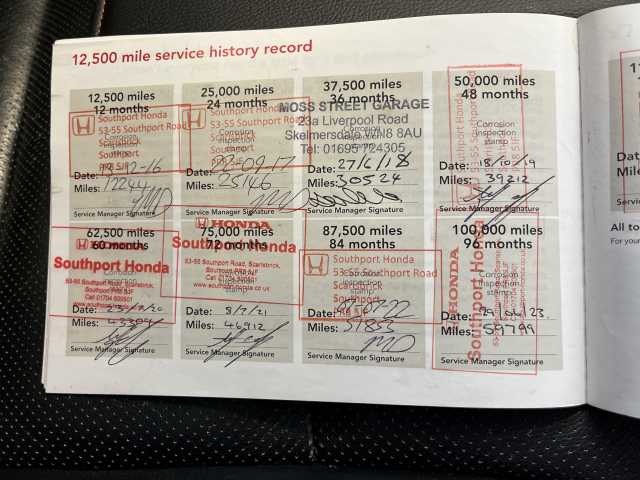 12,500 mile service history record
12,500 miles
12 months
Southport Honda
53-55 Southport Road
Corrosion
inspection
stamp
Date:
Miles: 12244
Service Manager Signature
25,000 miles
24 months
Southport Honda
53-55 Southport Road
Corrosion
Date: 09-17
Miles: 25146
Service Manager Signature
37,500 miles
36 months
MOSS STREET GARAGE
23a Liverpool Road
Skelmersdale WN8 8AU
Tel: 01695 724305
Date: 27/6/18
Miles: 30524
Service Manager Signature
50,000 miles
48 months
Southport Honda
Corrosion
inspection
stamp
Date: 18/10/19
Miles: 39212
Service Manager Signature
62,500 miles
60 months
HONDA
Southport Honda
53-55 Southport Road, Scarisbrick,
Southport PR8 5JF
Call 01704 500501
Date:
Miles: 43304
Service Manager Signature
75,000 miles
72 months
HONDA
Southport Honda
53-55 Southport Road, Scarisbrick,
Southport PR8 5JF
Call 01704 500501
stamp
Date: 8/7/21
Miles: 46912
Service Manager Signature
87,500 miles
84 months
Southport Honda
53-55 Southport Road
Scarisbrick
Southport
Corrosion
stamp
Date:
Miles: 51855
Service Manager Signature
100,000 miles
96 months
HONDA
Southport Honda
Corrosion
inspection
stamp
Date:
Miles: 59799
Service Manager Signature
All to